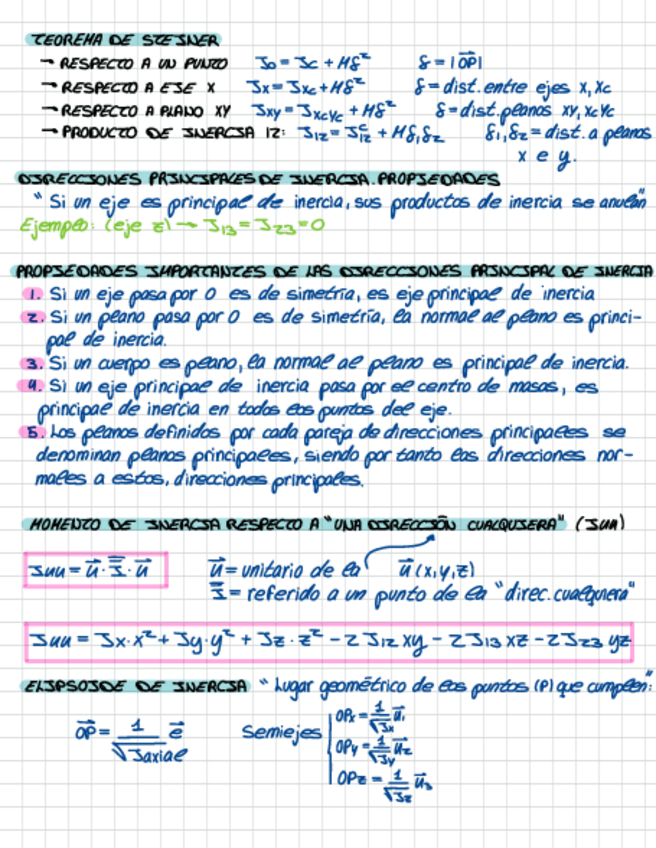 TEOREMA DE STEINER
→ RESPECTO A UN PUNTO J₀ = Jc + Mδ² δ = |OP⃗|
→ RESPECTO A EJE X Jx = Jxc + Mδ² δ = dist. entre ejes x, xc
→ RESPECTO A PLANO XY Jxy = Jxcyc + Mδ² δ = dist. planos xy, xcyc
→ PRODUCTO DE INERCIA 12: J₁₂ = Jᶜ₁₂ + Mδ₁δ₂ δ₁, δ₂ = dist. a planos
x e y.
DIRECCIONES PRINCIPALES DE INERCIA. PROPIEDADES
"Si un eje es principal de inercia, sus productos de inercia se anulan"
Ejemplo: (eje z) → J₁₃ = J₂₃ = 0
PROPIEDADES IMPORTANTES DE LAS DIRECCIONES PRINCIPAL DE INERCIA
1. Si un eje pasa por O es de simetría, es eje principal de inercia
2. Si un plano pasa por O es de simetría, la normal al plano es princi-
pal de inercia.
3. Si un cuerpo es plano, la normal al plano es principal de inercia.
4. Si un eje principal de inercia pasa por el centro de masas, es
principal de inercia en todos los puntos del eje.
5. Los planos definidos por cada pareja de direcciones principales se
denominan planos principales, siendo por tanto las direcciones nor-
males a estos, direcciones principales.
MOMENTO DE INERCIA RESPECTO A "UNA DIRECCIÓN CUALQUIERA" (Juu)
Juu = u⃗ · I̿ · u⃗ u⃗ = unitario de la u⃗ (x, y, z)
I̿ = referido a un punto de la "direc. cualquiera"
Juu = Jx·x² + Jy·y² + Jz·z² - 2J₁₂xy - 2J₁₃xz - 2J₂₃yz
ELIPSOIDE DE INERCIA "Lugar geométrico de los puntos (P) que cumplen:"
OP⃗ = 1/√Jaxial e⃗ Semiejes OPx = 1/√Jx u⃗₁
OPy = 1/√Jy u⃗₂
OPz = 1/√Jz u⃗₃